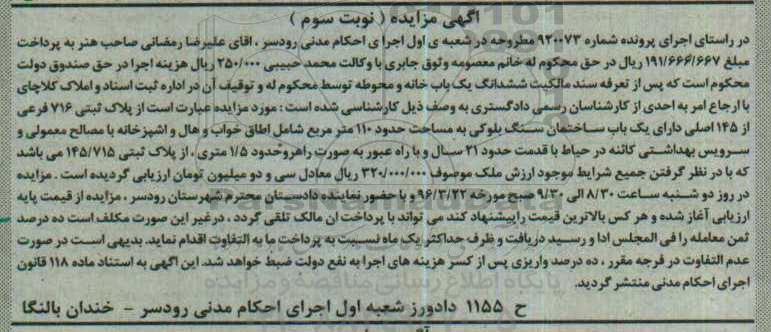 آگهی مزایده ( نوبت سوم )
در راستای اجرای پرونده شماره ۹۲۰۰۷۳ مطروحه در شعبه ی اول اجرا ی احکام مدنی رودسر ، اقای علیرضا رمضانی صاحب هنر به پرداخت
مبلغ ۱۹۱/۶۶۶/۶۶۷ ریال در حق محکوم له خانم معصومه وثوق جابری با وکالت محمد حبیبی ۲۵۰/۰۰۰ ریال هزینه اجرا در حق صندوق دولت
محکوم است که پس از تعرفه سند مالکیت ششدانگ یک باب خانه و محوطه توسط محکوم له و توقیف آن در اداره ثبت اسناد و املاک کلاچای
با ارجاع امر به احدی از کارشناسان رسمی دادگستری به وصف ذیل کارشناسی شده است : مورد مزایده عبارت است از پلاک ثبتی ۷۱۶ فرعی
از ۱۴۵ اصلی دارای یک باب ساختمان سنگ بلوکی به مساحت حدود ۱۱۰ متر مربع شامل اطاق خواب و هال و اشپزخانه با مصالح معمولی و
سرویس بهداشتی کائنه در حیاط با قدمت حدود ۲۱ سال و با راه عبور به صورت راهرو حدود ۱/۵ متری ، از پلاک ثبتی ۱۴۵/۷۱۵ می باشد
که با در نظر گرفتن جمیع شرایط موجود ارزش ملک موصوف ۳۲۰/۰۰۰/۰۰۰ ریال معادل سی و دو میلیون تومان ارزیابی گردیده است . مزایده
در روز دو شنبه ساعت ۸/۳۰ الی ۹/۳۰ صبح مورخه ۹۶/۳/۲۲ و با حضور نماینده دادستان محترم شهرستان رودسر ، مزایده از قیمت پایه
ارزیابی آغاز شده و هر کس بالاترین قیمت را پیشنهاد کند می تواند با پرداخت ان مالک تلقی گردد ، درغیر این صورت مکلف است ده درصد
ثمن معامله را فی المجلس ادا و رسید دریافت و ظرف حداکثر یک ماه نسبت به پرداخت ما به التفاوت اقدام نماید. بدیهی است در صورت
عدم التفاوت در فرجه مقرر ، ده درصد واریزی پس از کسر هزینه های اجرا به نفع دولت ضبط خواهد شد. این اگهی به استناد ماده ۱۱۸ قانون
اجرای احکام مدنی منتشر گردید.
ح ۱۱۵۵ دادورز شعبه اول اجرای احکام مدنی رودسر - خندان بالنگا